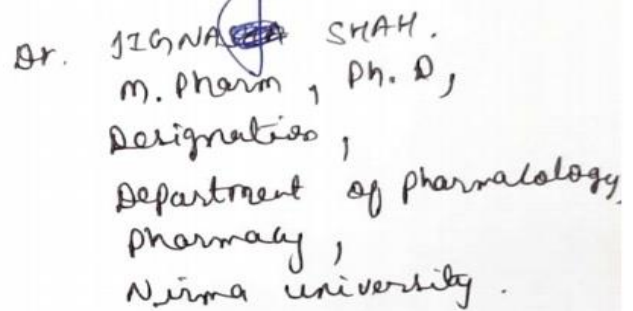 Dr. JIGNA SHAH.
M. Pharm, Ph. D,
Designation,
Department of pharmacology,
pharmacy,
Nirma university.